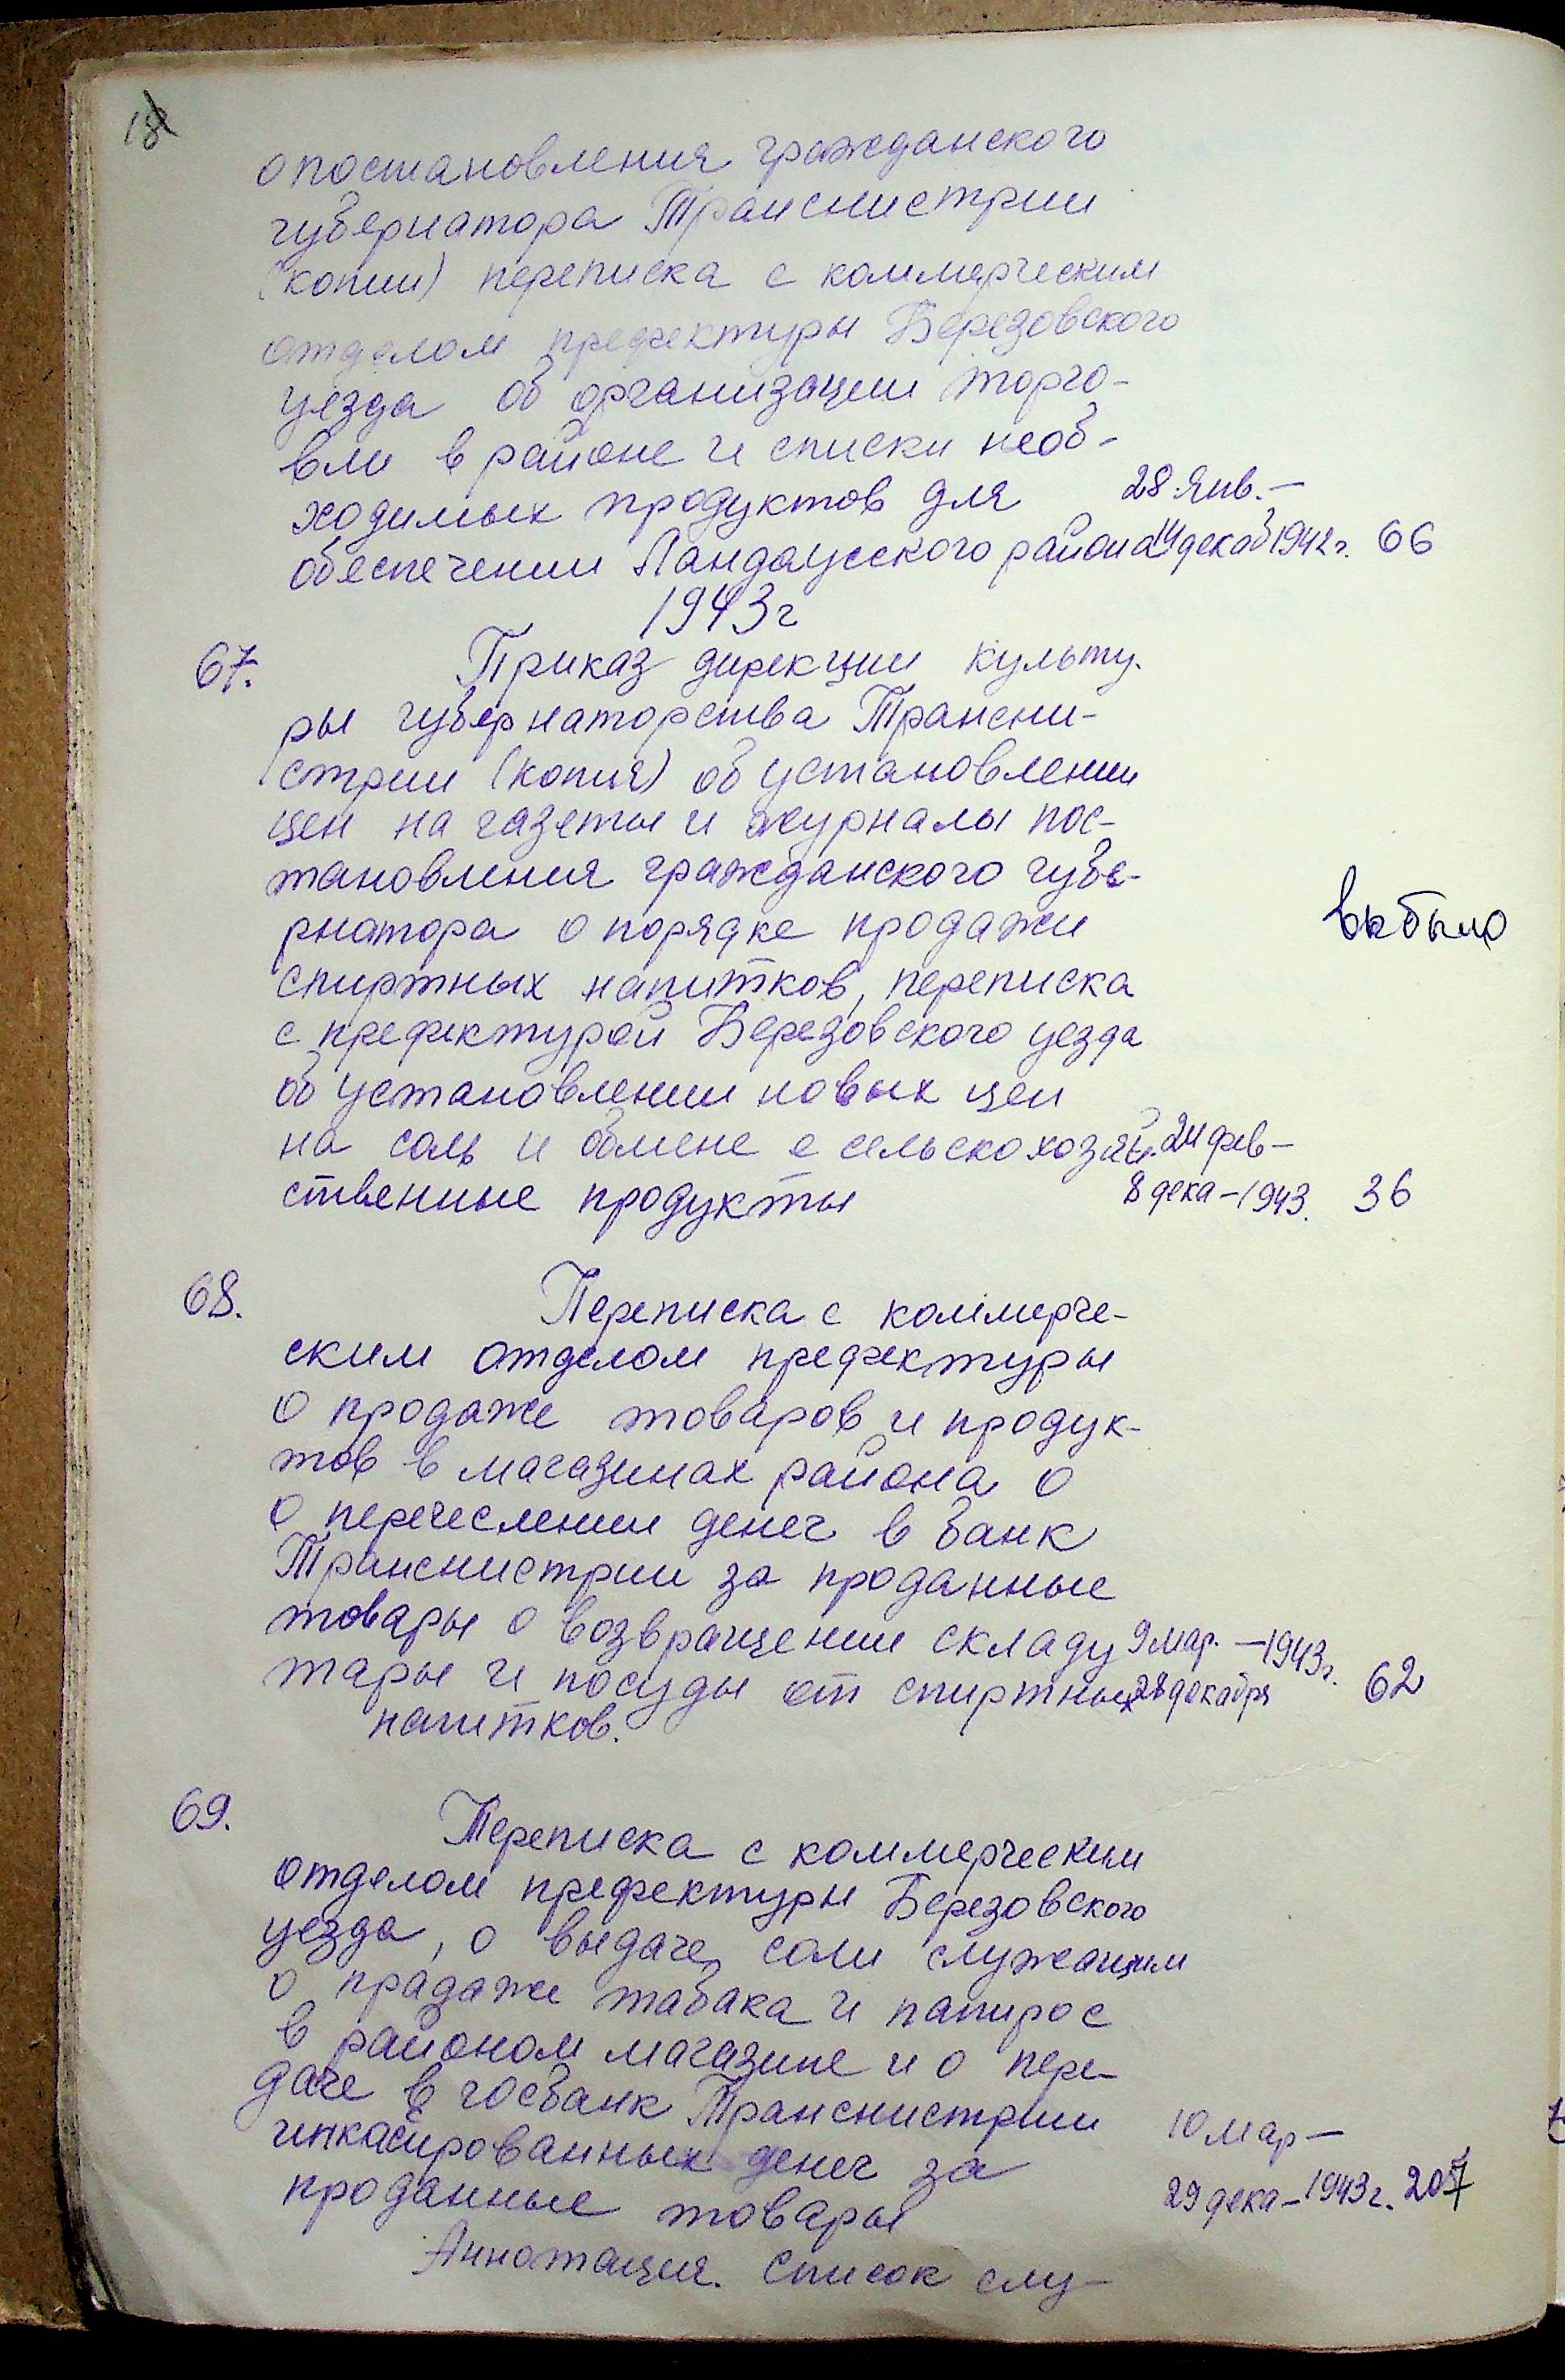 18
о постановления гражданского
губернатора Транснистрии
(копии) переписка с коммерческим
отделом префектуры Березовского
уезда об организации торго-
вли в районе и списки необ-
ходимых продуктов для 28 янв. —
обеспечении Ландаусского района 14 декаб 1942 г. 66
1943 г
67. Приказ дирекции культу-
ры губернаторства Трансни-
стрии (копия) об установлении
цен на газеты и журналы пос-
тановления гражданского губе-
рнатора о порядке продажи выбыло
спиртных напитков, переписка
с префектурой Березовского уезда
об установлении новых цен
на соль и обмене с сельскохозяй- 24 фев —
ственные продукты 8 дека — 1943. 36
68. Переписка с коммерче-
ским отделом префектуры
о продаже товаров и продук-
тов в магазинах района о
о перечеслении денег в банк
Транснистрии за проданные
товары о возвращении складу 9 мар. — 1943 г.
тары и посуды от спиртных 28 декабря 62
напитков.
69. Переписка с коммерческим
отделом префектуры Березовского
уезда, о выдаче соли служащим
о прадаже табака и папирос
в районом магазине и о пере-
даче в госбанк Транснистрии 10 мар —
инкасированных денег за
проданные товары 29 дека — 1943 г. 207
Аннотация. Список слу-